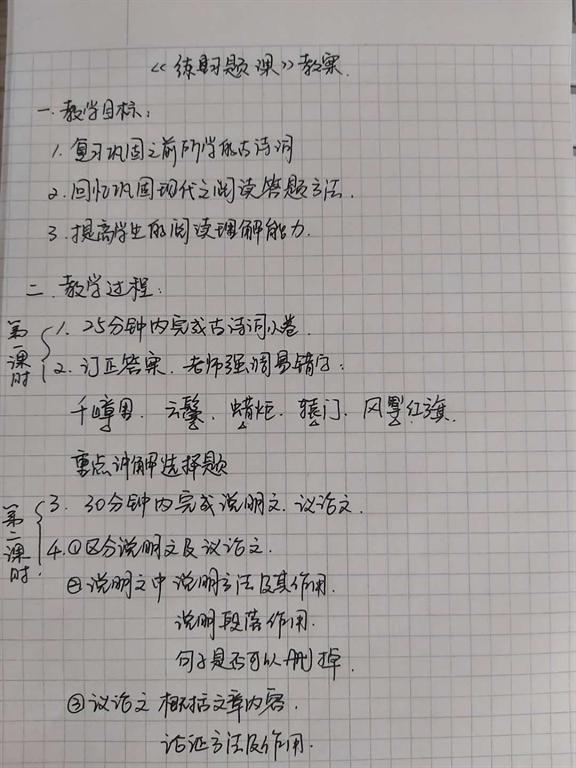 《练习题课》教案.
一.教学目标:
1.复习巩固之前所学的古诗词
2.回忆巩固现代文阅读答题方法.
3.提高学生的阅读理解能力.
二.教学过程:
第一课时
1. 25分钟内完成古诗词小卷.
2.订正答案.老师强调易错字:
千嶂里.云鬓.蜡炬.辕门.风掣红旗.
重点讲解选择题
第二课时.
3. 30分钟内完成说明文.议论文.
4.①区分说明文及议论文.
②说明文中说明方法及其作用.
说明段落作用.
句子是否可以删掉.
③议论文 概括文章内容.
论证方法及作用.